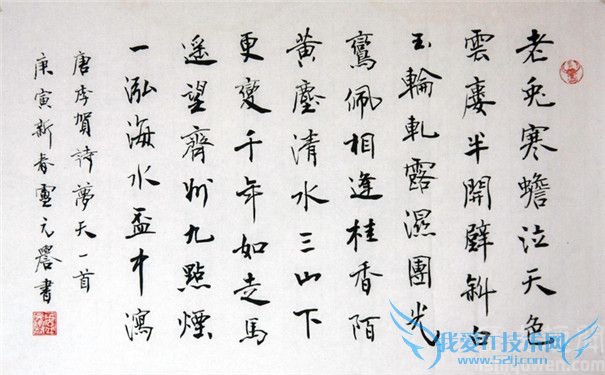 老兔寒蟾泣天色
雲廔半開壁斜白
玉輪軋露濕團光
鸞佩相逢桂香陌
黃塵清水三山下
更變千年如走馬
遙望齊州九點煙
一泓海水盃中瀉
唐李賀詩夢天一首
庚寅新春元書
我爱IT技术网
www.52ij.com